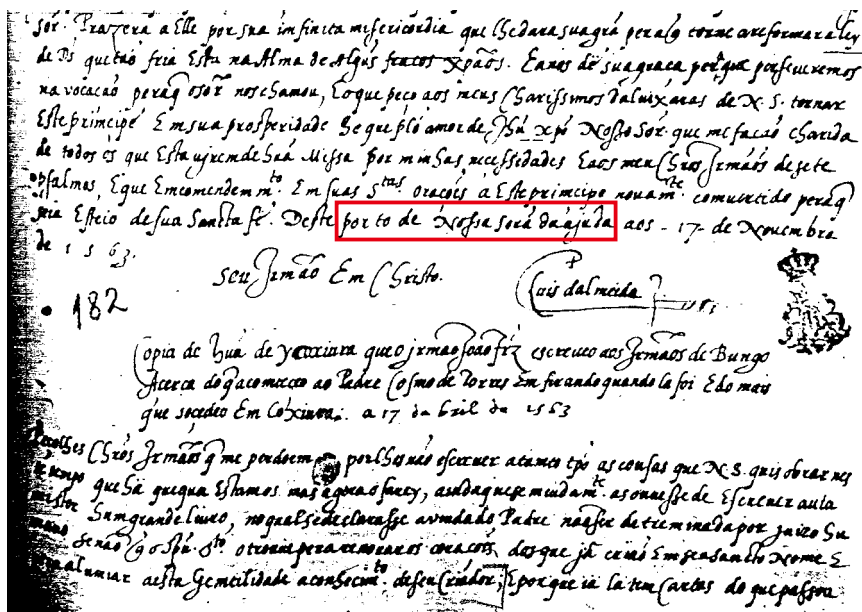 sor. Prazera a Elle por sua infinita misericordia que lhe dara sua grã pera q̃ torne a reformar a ley
de Ds que tão fria Esta na Alma de Algũs fracos xpãos. E a nos dê sua graca pera que perseueremos
na vocacão pera q̃ o sor nos chamou, E o que peço aos meus Charissimos de N. S. tornar
Este principe Em sua prosperidade he que plo amor de Jhũ xpõ Nosso Sõr que me facão charida
de todos os que Esta uirem de hũa Missa por minhas necessidades E aos meu Chros Jrmãos de sete
psalmos, E que Emcomendem mto. Em suas Stas orações a Este principe nouamte. comuertido pera q̃
seja Esteio de sua Sancta fé. Deste porto de Nossa sora da ajuda aos - 17 - de Nouembro
de 1563.
Seu Jrmão Em Christo. Luis dalmeida
182
Copia de hũa de ycoxiura que o jrmão João frz escreueo aos Jrmãos de Bungo
Acerca do q̃ acomteceo ao Padre Cosmo de Torres Em firando quando la foi E do mais
que socedeo Em Cocxiura. a 17 da bril de 1563
Chros Jrmãos q̃ me perdoem por lhes não escreuer a tamto tpõ as cousas que N. S. quis obrar nes
te tempo que ha que qua Estamos mas agora o farey, ainda que se meudamte. as ouuesse de Escreuer auia
mister hum grande liuro, no qual se declarasse a vimda do Padre não ser detreminada por juizo hu
mano senão q̃ o Spũ Sto o trouue pera renouar os corações dos que já crião Em seu sancto Nome E
alumiar a esta Gentilidade a conhecimto. de seu Criador, E por que ia la tem Cartas do que passou